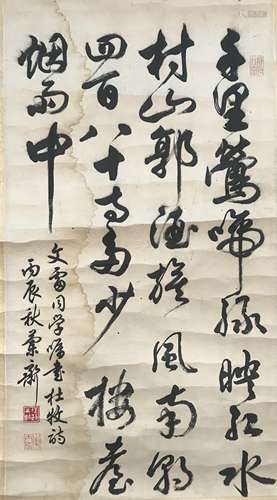 千里鶯啼绿映红水
村山郭酒旗風南朝
四百八十寺多少樓臺
烟雨中
文雷同学嘱书杜牧诗
丙辰秋